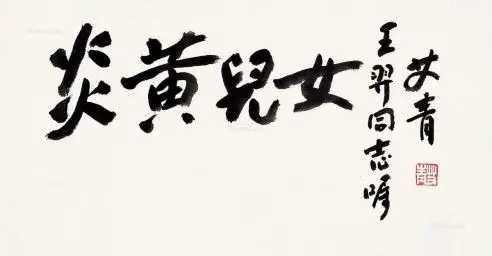 炎黄兒女
王羿同志嘱
艾青